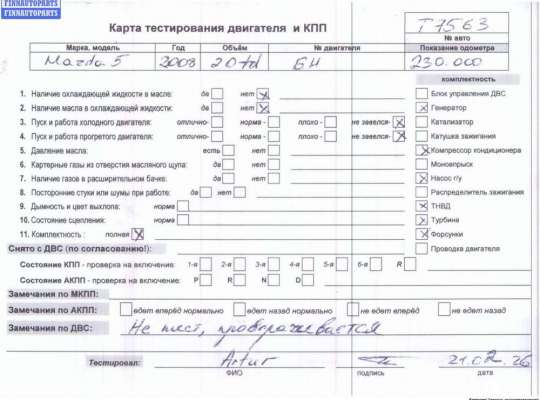 FINNАВТОPARTS
FINNАВТОPARTS
Карта тестирования двигателя и КПП
T7563
№ авто
Марка, модель Год Объём № двигателя Показание одометра
Mazda 5 2008 2.0 td БН 230.000
комплектность
1. Наличие охлаждающей жидкости в масле: да нет
Блок управления ДВС
2. Наличие масла в охлаждающей жидкости: да нет
Генератор
3. Пуск и работа холодного двигателя: отлично- норма - плохо - не завелся-
Катализатор
4. Пуск и работа прогретого двигателя: отлично- норма - плохо - не завелся-
Катушка зажигания
5. Давление масла: есть нет
Компрессор кондиционера
6. Картерные газы из отверстия масляного щупа: да нет
Моновпрыск
7. Наличие газов в расширительном бачке: да нет
Насос г/у
8. Посторонние стуки или шумы при работе: да нет
Распределитель зажигания
9. Дымность и цвет выхлопа: норма
ТНВД
10. Состояние сцепления: норма
Турбина
11. Комплектность : полная
Форсунки
Снято с ДВС (по согласованию!):
Проводка двигателя
Состояние КПП - проверка на включение: 1-я 2-я 3-я 4-я 5-я 6-я R
Состояние АКПП - проверка на включение: P R N D
Замечания по МКПП:
Замечания по АКПП: едет вперёд нормально едет назад нормально не едет вперёд не едет назад
Замечания по ДВС: Не тест, проворачивается
Тестировал: Artur 21.02.26
ФИО подпись дата